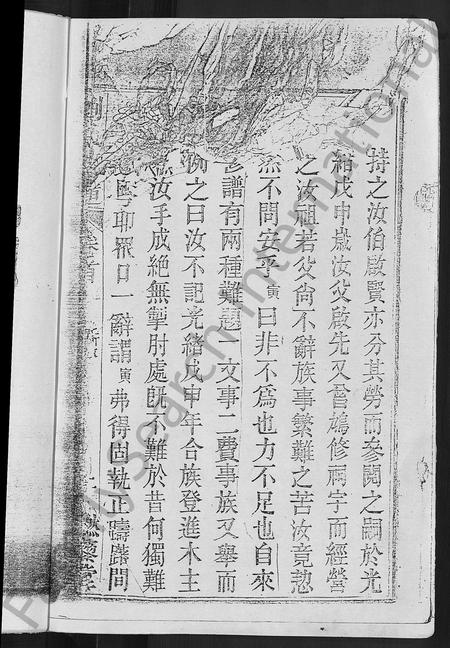 持之汝伯啟賢亦分其勞而參閱之嗣於光
緒戊申歲汝父啟先又督鳩修祠宇而經營
之汝祖若父尚不辭族事繁難之苦汝竟恝
然不問安乎寅曰非不為也力不足也自來
修譜有兩種難題一文事二費事族又舉而
勉之曰汝不記光緒戊申年合族登進木主
汝手成絕無掣肘處既不難於昔何獨難
眾口一辭謂寅弗得固執正躊躇間
卷首
FamilySearch International